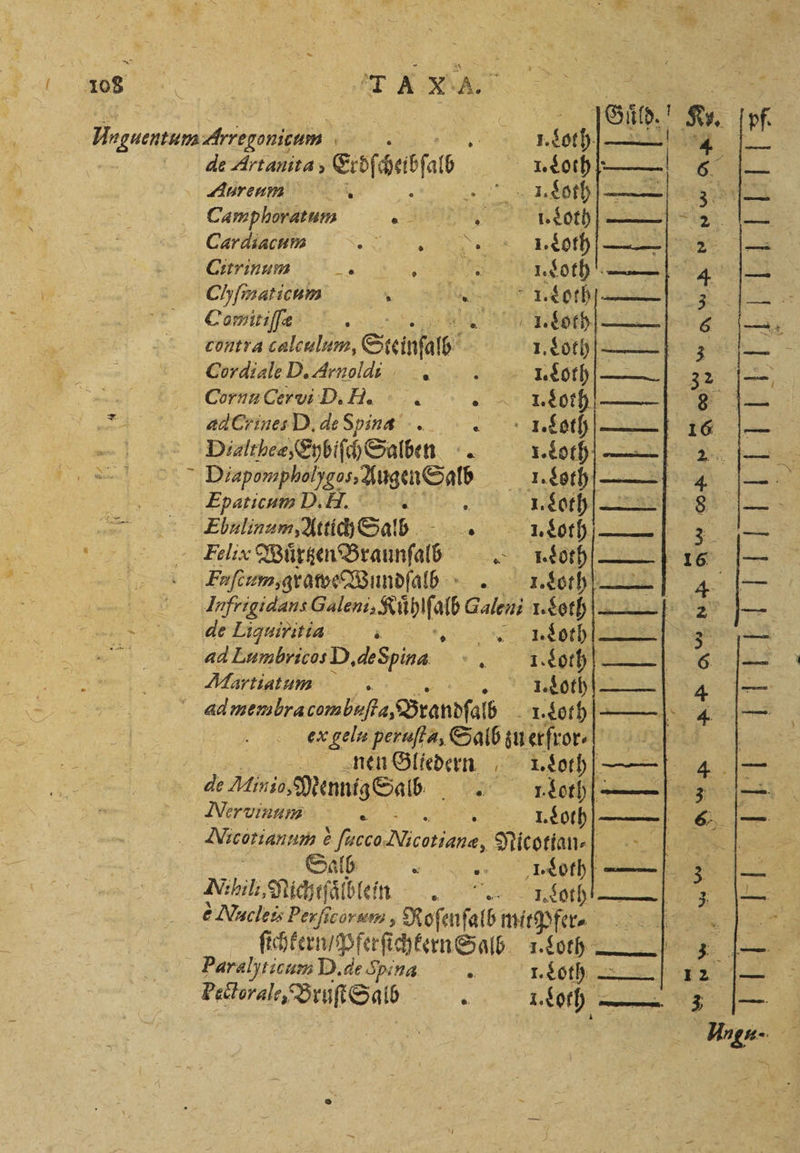 108 TAXA.
Güld. Kr. pf.
Unguentum Arregonicum . . 1.Loth — 4 —
de Artanita, Erdscheibsalb 1.Loth — 6 —
Aureum . . . 1.Loth — 3 —
Camphoratum . . 1.Loth — 2 —
Cardiacum . . . 1.Loth — 2 —
Citrinum . . . 1.Loth — 4 —
Clysmaticum . . 1.Loth — 3 —
Comitissæ . . . 1.Loth — 6 —
contra calculum, Steinsalb 1.Loth — 3 —
Cordiale D. Arnoldi . . 1.Loth — 32 —
Cornu Cervi D. H. . . 1.Loth — 8 —
ad Crines D. de Spina . . 1.Loth — 16 —
Dialtheæ, Eybisch Salben . 1.Loth — 2 —
Diapompholygos, Augen Salb 1.Loth — 4 —
Epaticum D. H. . . 1.Loth — 8 —
Ebulinum, Attich Salb . 1.Loth — 3 —
Felix Würtzen Braunsalb . 1.Loth — 16 —
Fuscum, grawe Wundsalb . 1.Loth — 4 —
Infrigidans Galeni, Kühlsalb Galeni 1.Loth — 2 —
de Liquiritia . . . 1.Loth — 3 —
ad Lumbricos D. de Spina . 1.Loth — 6 —
Martiatum . . . 1.Loth — 4 —
ad membra combusta, Brandsalb 1.Loth — 4 —
ex gelu perusta, Salb zu erfror-
nen Gliedern , 1.Loth — 4 —
de Minio, Mennig Salb . 1.Loth — 3 —
Nervinum . . . 1.Loth — 6 —
Nicotianum e succo Nicotianæ, Nicotian-
Salb . . 1.Loth — 3 —
Nihili, Nichtsälblein . . 1.Loth — 3 —
e Nucleis Persicorum, Rosensalb mit Pfer-
sichkern/Pfersichkern Salb 1.Loth — 3 —
Paralyticum D. de Spina . 1.Loth — 12 —
Pectorale, Brust Salb . 1.Loth — 3 —
Ungu-